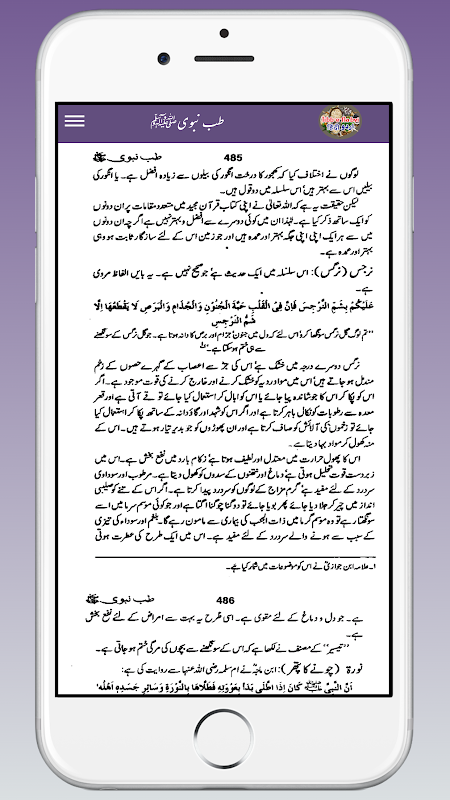 طب نبوی ﷺ
طب نبوی ﷺ 485
لوگوں نے اختلاف کیا کہ کھجور کا درخت انگور کی بیلوں سے زیادہ افضل ہے۔ یا انگور کی
بیلیں اس سے بہتر ہیں؛ اس سلسلہ میں دو قول ہیں۔
لیکن حقیقت یہ ہے کہ اللہ تعالیٰ نے اپنی کتاب قرآن مجید میں متعدد مقامات پر ان دونوں
کو ایک ساتھ ذکر کیا ہے۔ لہٰذا ان میں کوئی دوسرے سے افضل و بہتر نہیں ہے اگرچہ ان دونوں
میں سے ہر ایک اپنی اپنی جگہ بہتر اور عمدہ ہیں اور جو زمین اس کے لئے سازگار ثابت ہو وہی
بہتر اور عمدہ ہے۔
نرجس (نرگس): اس سلسلہ میں ایک حدیث ہے جو صحیح نہیں ہے۔ یہ بایں الفاظ مروی
ہے۔
عَلَيْكُمْ بِشَمِّ النَّرْجِسِ فَاِنَّ فِي الْقَلْبِ حَبَّةَ الْجُنُوْنِ وَالْجُذَامِ وَالْبَرَصِ لَا يَقْطَعُهَا اِلَّا
شَمُّ النَّرْجِسِ
''تم لوگ گل نرگس سونگھا کرو اس لئے کہ دل میں جنون جزام اور برص کا دانہ ہوتا ہے۔ جو گل نرگس کے سونگھنے
سے ہی ختم ہو سکتا ہے۔''
نرگس دوسرے درجہ میں خشک ہے؛ اس کی جڑ سے اعصاب کے گہرے حصوں کے زخم
مندمل ہو جاتے ہیں؛ اس میں مواد ردیہ کو خشک کرنے اور خارج کرنے کی قوت موجود ہے۔ اگر
اس کو پکا کر اس کا جوشاندہ پیا جائے یا اس کو ابال کر استعمال کیا جائے تو قے آتی ہے اور قعر
معدہ سے رطوبات کو نکال باہر کرتا ہے اور اگر اس کو شہد اور گاؤ دانہ کے ساتھ پکا کر استعمال کیا
جائے تو زخموں کی آلائش کو صاف کرتا ہے اور ان پھوڑوں کو جو بدیر تیار ہوتے ہیں۔ اس کے
منہ کھول کر مواد بہا دیتا ہے۔
اس کا پھول حرارت میں معتدل اور لطیف ہوتا ہے؛ زکام بارد میں نفع بخش ہے۔ اس میں
زبردست قوت تحلیل ہوتی ہے دماغ اور نتھنوں کے سدوں کو کھول دیتا ہے۔ مرطوب اور سوداوی
سردرد کے لئے مفید ہے؛ گرم مزاج کے لوگوں کو سردرد پیدا کرتا ہے۔ اگر اس کے تنے کو صلیبی
انداز میں چیر کر جلا دیا جائے پھر بویا جائے تو دو گنا چوگنا اگتا ہے اور جو کوئی موسم سرما میں اسے
سونگھتا رہے تو وہ موسم گرما میں ذات الجنب کی بیماری سے مامون رہے گا۔ بلغم اور سوداء کی تیزی
کے سبب سے ہونے والے سردرد کے لئے مفید ہے۔ اس میں ایک طرح کی عطریت ہوتی
۱۔ علامہ ابن جوازیؒ نے اس کو موضوعات میں شمار کیا ہے۔
طب نبوی ﷺ 486
ہے۔ جو دل و دماغ کے لئے مقوی ہے۔ اسی طرح یہ بہت سے امراض کے لئے نفع بخش
ہے۔
''تیسیر'' کے مصنف نے لکھا ہے کہ اس کے سونگھنے سے بچوں کی مرگی ختم ہو جاتی ہے۔
نورۃ (چونے کا پتھر): ابن ماجہؒ نے ام سلمہ رضی اللہ عنہا سے روایت کی ہے:
اَنَّ النَّبِيَّ ﷺ كَانَ اِذَا اطَّلٰى بَدَاَ بِعَوْرَتِهٖ فَطَلَاهَا بِالنُّوْرَةِ وَسَائِرَ جَسَدِهٖ اَهْلُهُ'